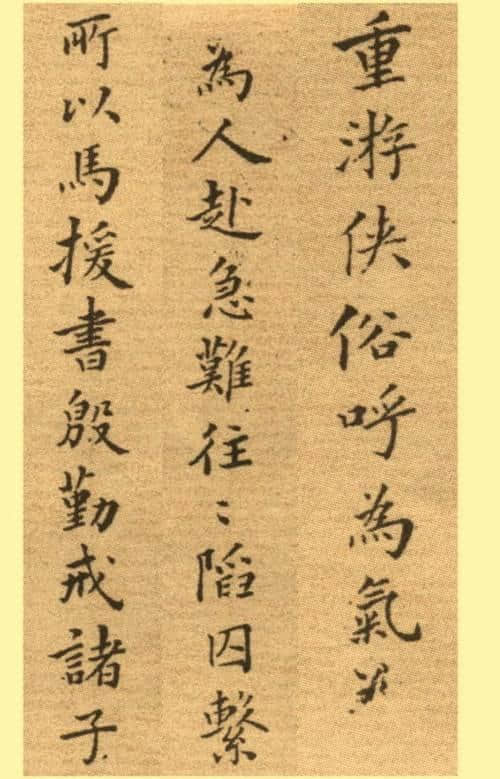 重游侠俗呼為氣义
為人赴急難往〻陷囚繫
所以馬援書殷勤戒諸子